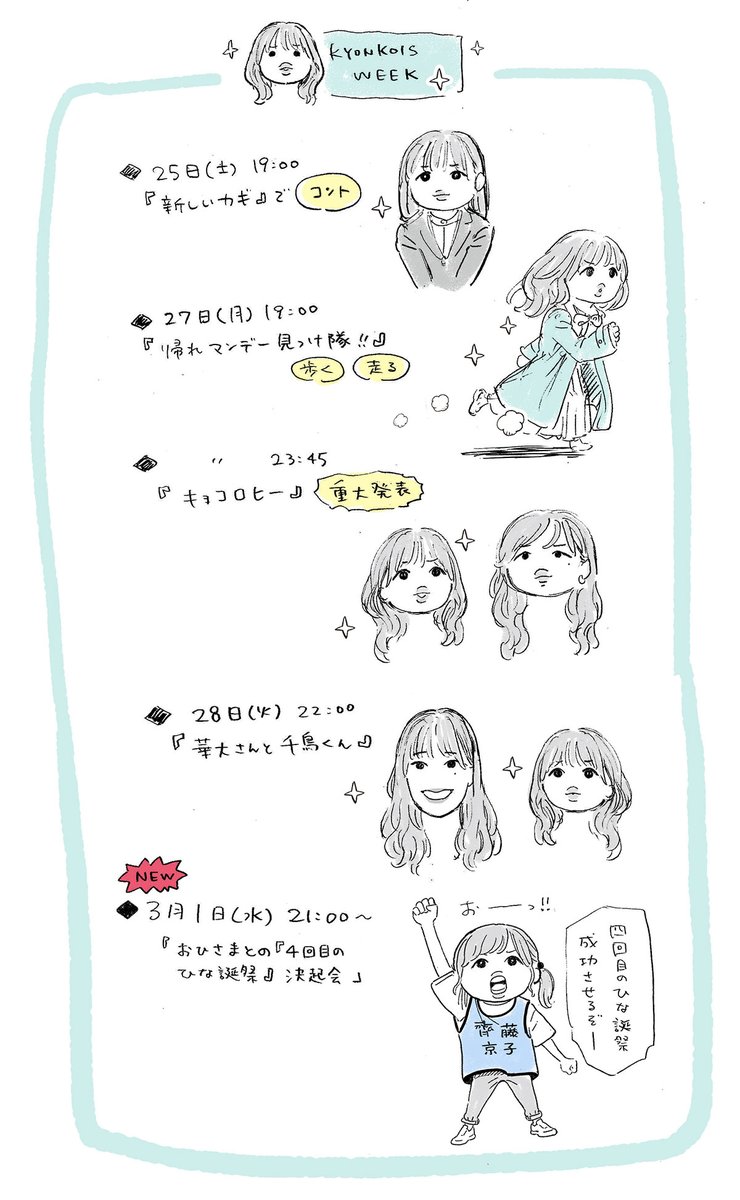 KYONKOIS
WEEK
25日(土) 19:00
『新しいカギ』で コント
27日(月) 19:00
『帰れマンデー見つけ隊!!』
歩く 走る
〃 23:45
『キョコロヒー』 重大発表
28日(火) 22:00
『華大さんと千鳥くん』
NEW
3月1日(水) 21:00～
『おひさまとの『4回目の
ひな誕祭』決起会」
おーーっ!!
四回目のひな誕祭
成功させるぞー
齊藤
京子